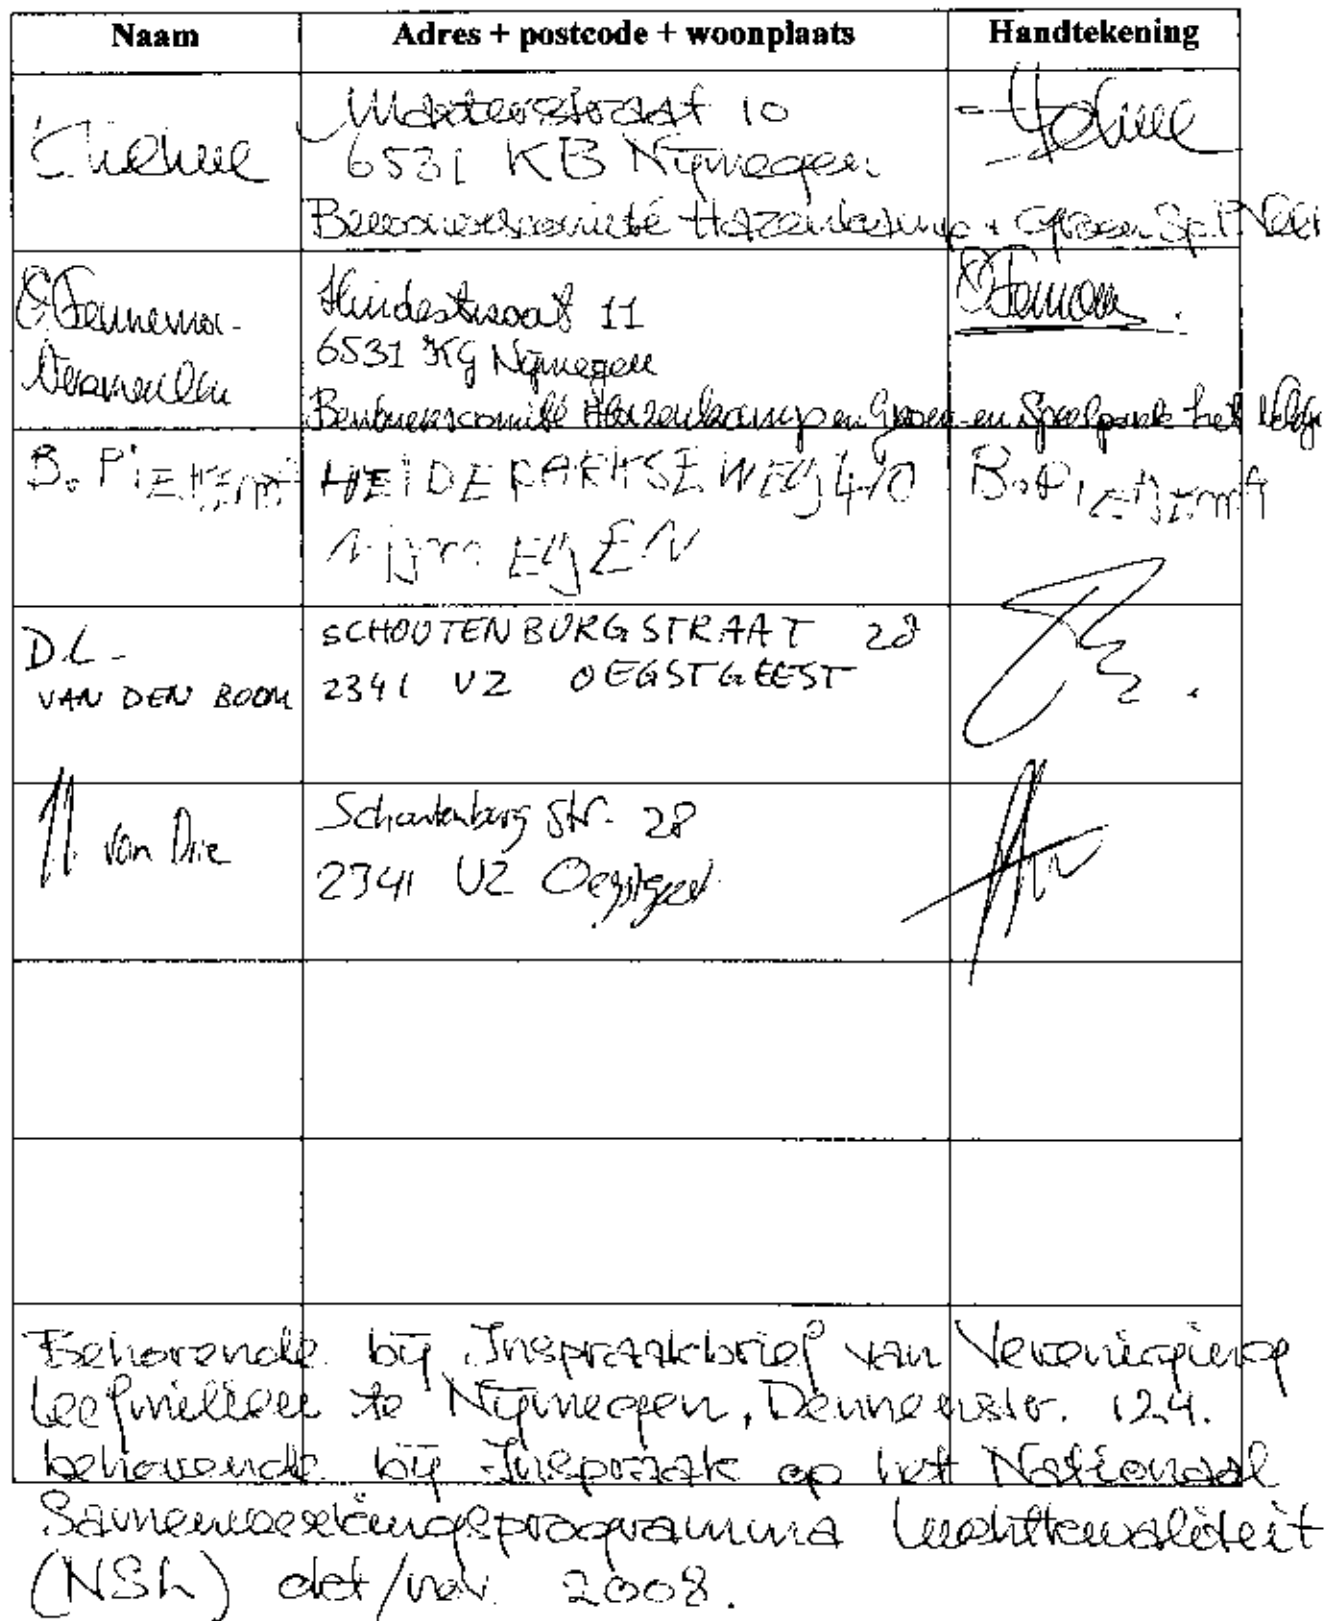 Naam Adres + postcode + woonplaats Handtekening
Materstraat 10
6531 KB Nijmegen
Bewonerscomité Hazenkamp + Groen Sp.P.
Hindestraat 11
6531 KG Nijmegen
Bewonerscomité Hazenkamp en Groen- en Speelpark het
B. HEIDEPARKSEWEG B.
NijmEgEN
D.L. SCHOUTENBURGSTRAAT 28
VAN DEN BOOM 2341 VZ OEGSTGEEST
van Drie Schoutenburg str. 28
2341 VZ Oegstgeest
Behorende bij Inspraakbrief van Vereniging
Leefmilieu te Nijmegen, Dennenstr. 124.
behorende bij Inspraak op het Nationaal
Samenwerkingsprogramma Luchtkwaliteit
(NSL) okt/nov. 2008.